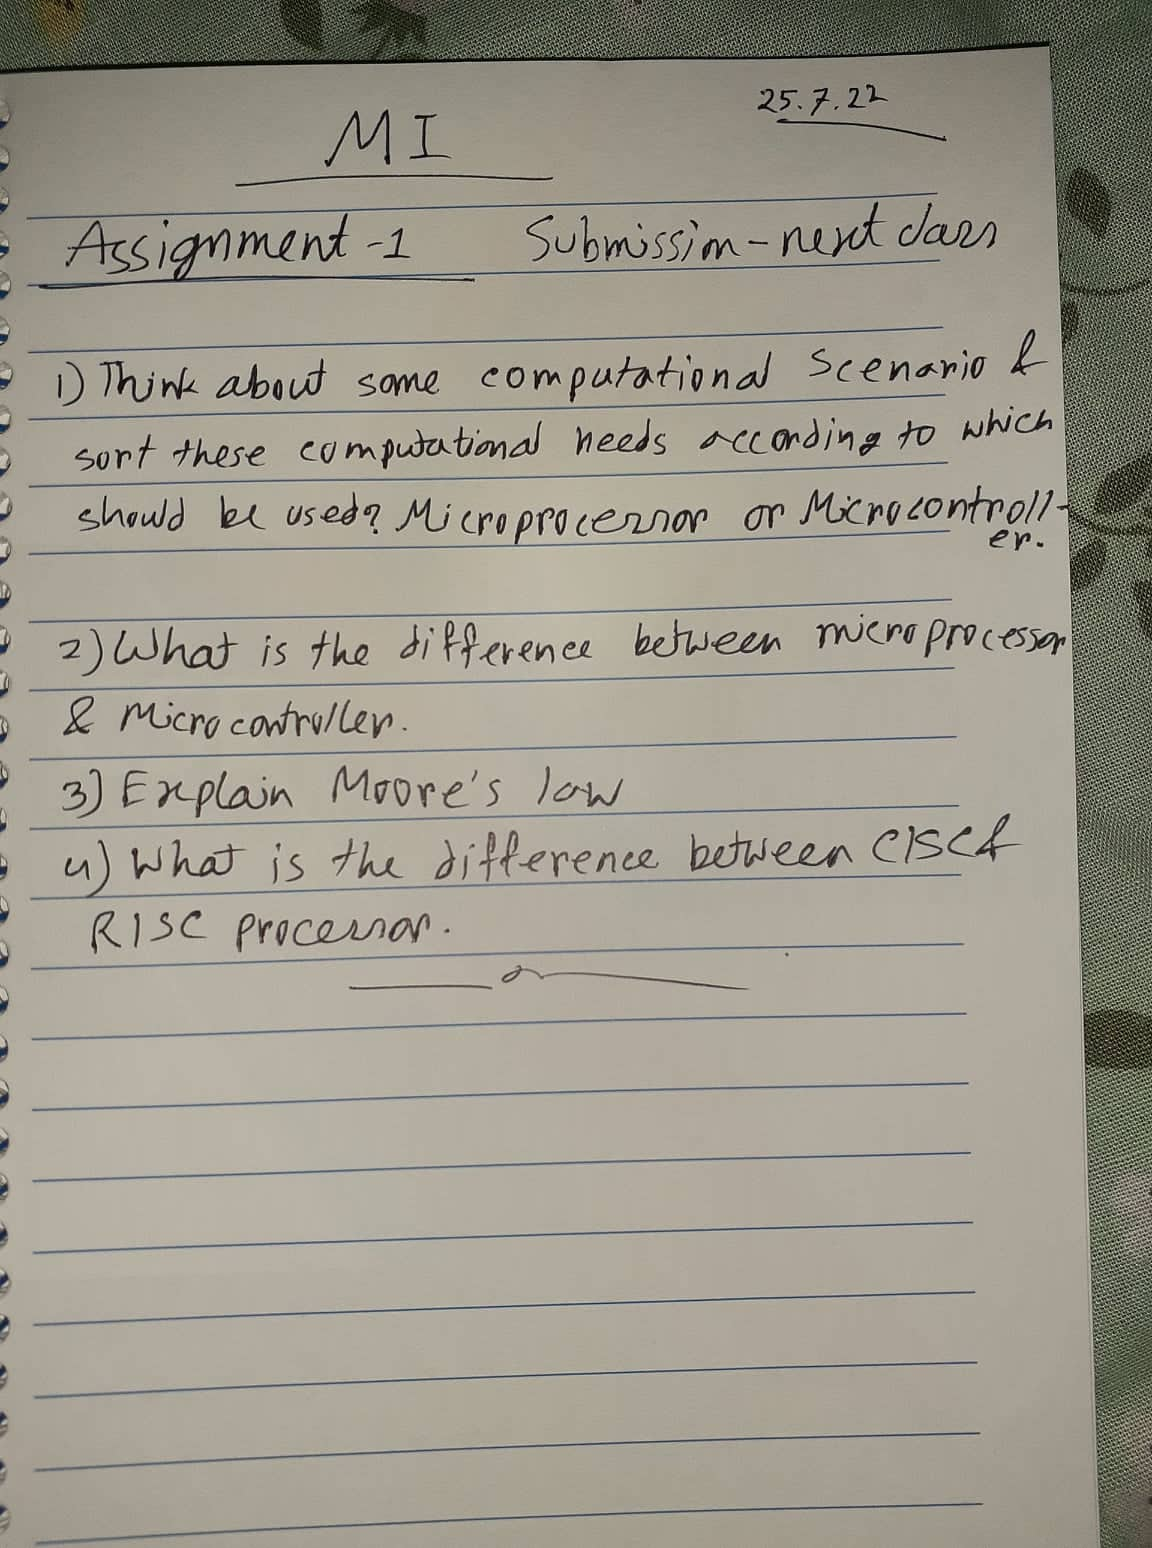 25.7.22
MI
Assignment-1 Submission-next class
1) Think about some computational Scenario &
sort these computational needs according to which
should be used? Microprocessor or Microcontroll-
er.
2) What is the difference between microprocessor
& Microcontroller.
3) Explain Moore's law
4) What is the difference between CISC &
RISC processor.